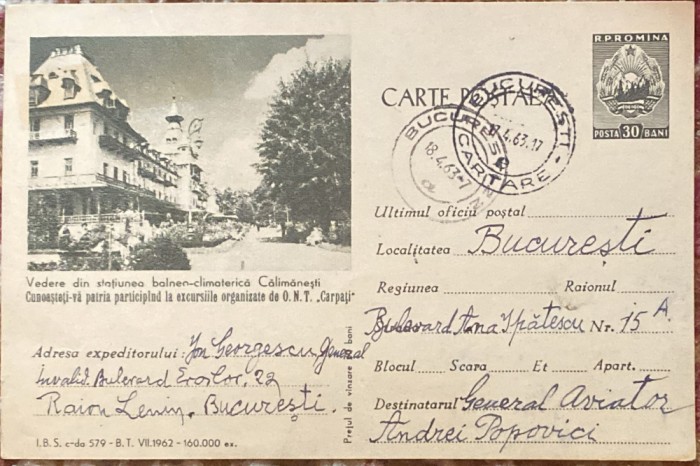 R.P.ROMINA
POSTA 30 BANI
CARTE POȘTALĂ
BUCUREȘTI
17.4.63.17
CARTARE
BUCUREȘ
18.4.63-7
Vedere din stațiunea balneo-climaterică Călimănești
Cunoașteți-vă patria participînd la excursiile organizate de O.N.T. „Carpați"
Adresa expeditorului: Ion Georgescu General
Invalid. Bulevard Eroilor, 22
Raion Lenin, București.
I.B.S. c-da 579 - B.T. VII.1962 - 160.000 ex.
Prețul de vînzare bani
Ultimul oficiu poștal
Localitatea București
Regiunea Raionul
Bulevard Ana Ipătescu Nr. 15 A.
Blocul Scara Et Apart.
Destinatarul General Aviator
Andrei Popovici